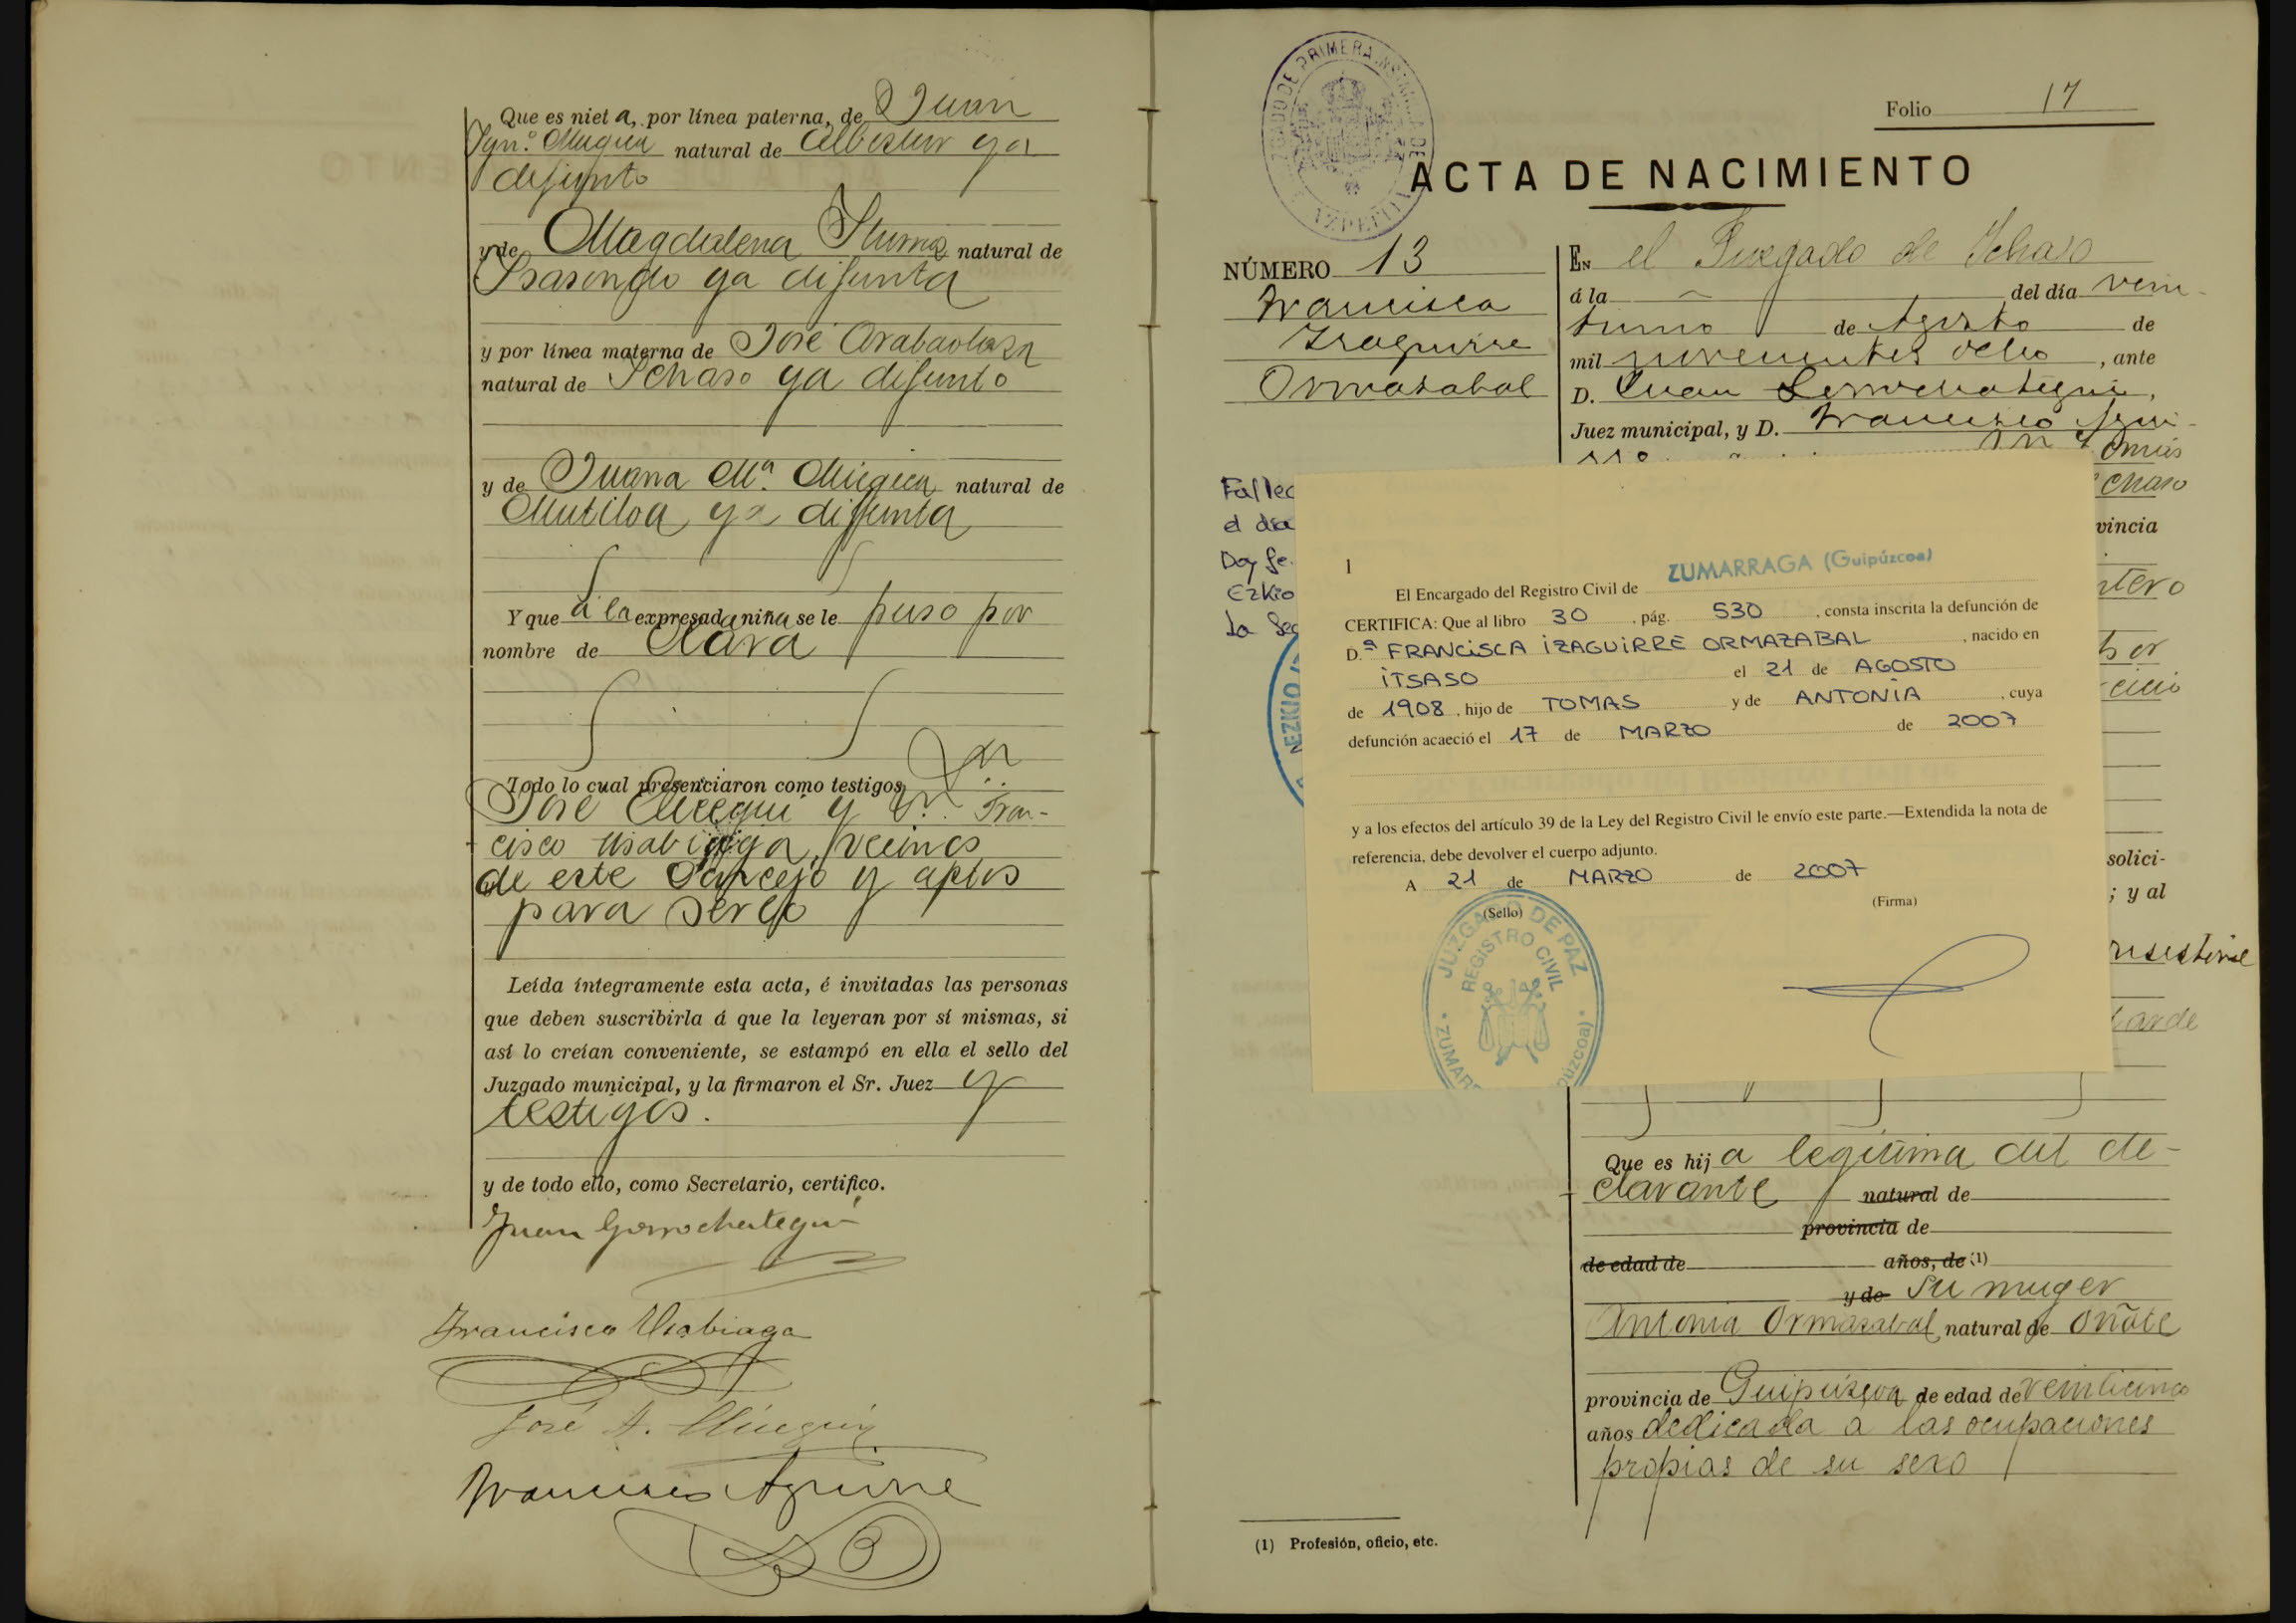 Que es nieta, por línea paterna, de Juan
Ygn.º Mugica natural de Albistur ya
difunto
y de Magdalena Iturrioz natural de
Isasondo ya difunta
y por línea materna de José Arabaolaza
natural de Ichaso ya difunto
y de Juana Mª Múgica natural de
Mutiloa ya difunta
Y que á la expresada niña se le puso por
nombre de Clara
Todo lo cual presenciaron como testigos, Dn
José y Dn. Fran-
cisco Usabiaga, vecinos
de este Concejo y aptos
para serlo
Leída íntegramente esta acta, é invitadas las personas
que deben suscribirla á que la leyeran por sí mismas, si
así lo creían conveniente, se estampó en ella el sello del
Juzgado municipal, y la firmaron el Sr. Juez y
testigos.
y de todo ello, como Secretario, certifico.
Juan Gorrochategui
Francisco Usabiaga
José A.
Francisco Aguirre
JUZGADO DE PRIMERA INSTANCIA DE AZPEITIA
Folio 17
ACTA DE NACIMIENTO
NÚMERO 13
Francisca
Izaguirre
Ormazabal
EN el Juzgado de Ichaso
á la del día vein-
tiuno de Agosto de
mil novecientos ocho, ante
D. Juan Gorrochategui,
Juez municipal, y D. Francisco Agui-
Dn Tomás
chaso
vincia
ntero
Fallec
el día
Doy fe.
Ezkio
La Sec
EZKIO
1
El Encargado del Registro Civil de ZUMARRAGA (Guipúzcoa)
CERTIFICA: Que al libro 30, pág. 530, consta inscrita la defunción de
D.ª FRANCISCA IZAGUIRRE ORMAZABAL, nacido en
ITSASO el 21 de AGOSTO
de 1908, hijo de TOMAS y de ANTONIA, cuya
defunción acaeció el 17 de MARZO de 2007
y a los efectos del artículo 39 de la Ley del Registro Civil le envío este parte.—Extendida la nota de
referencia, debe devolver el cuerpo adjunto.
A 21 de MARZO de 2007
(Sello)
(Firma)
JUZGADO DE PAZ
REGISTRO CIVIL
ZUMAR púzcoa)
solici-
; y al
tarde
Que es hija legítima del de-
clarante natural de
provincia de
de edad de años, de (1)
y de su muger
Antonia Ormazabal natural de Oñate
provincia de Guipúzcoa de edad de veinticinco
años dedicada a las ocupaciones
propias de su sexo
(1) Profesión, oficio, etc.